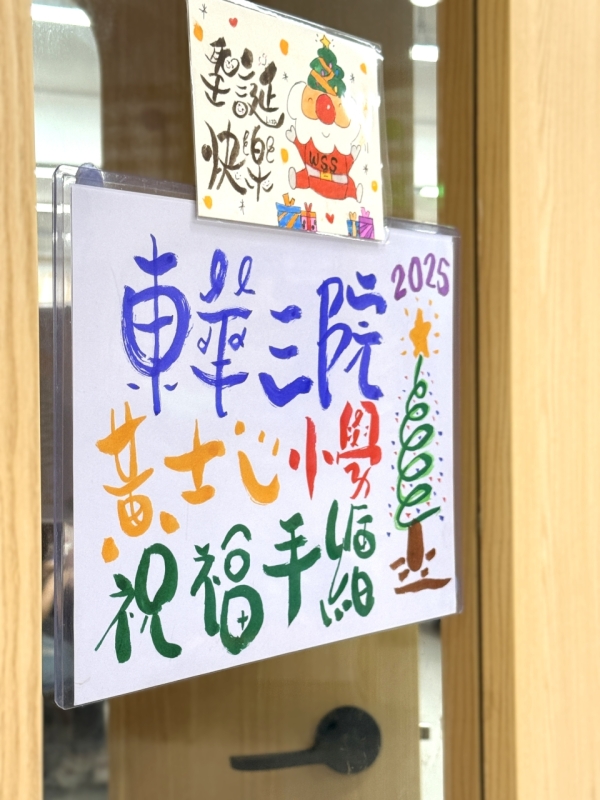 聖誕
快樂
WSS
2025
東華三院
黃士心小學
祝福手繪